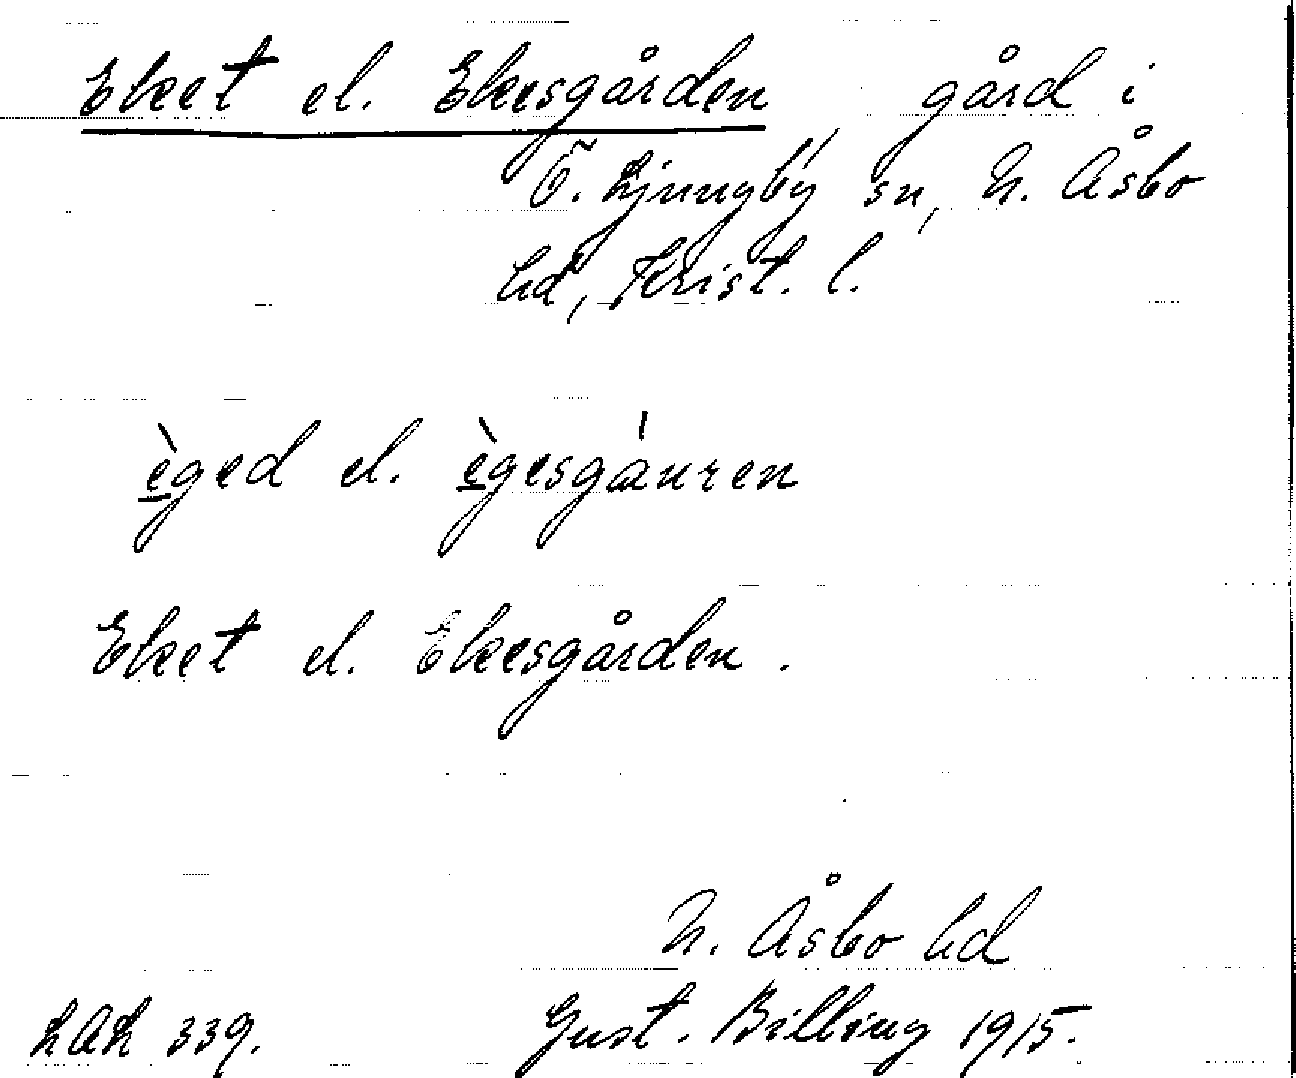 Ekeet el. Ekesgården gård i
Ö. Ljungby sn, N. Åsbo
hd, Krist. l.
èged el. ègesgáuren
Ekeet el. Ekesgården.
N. Åsbo hd
LAL 339. Gust. Billing 1915.